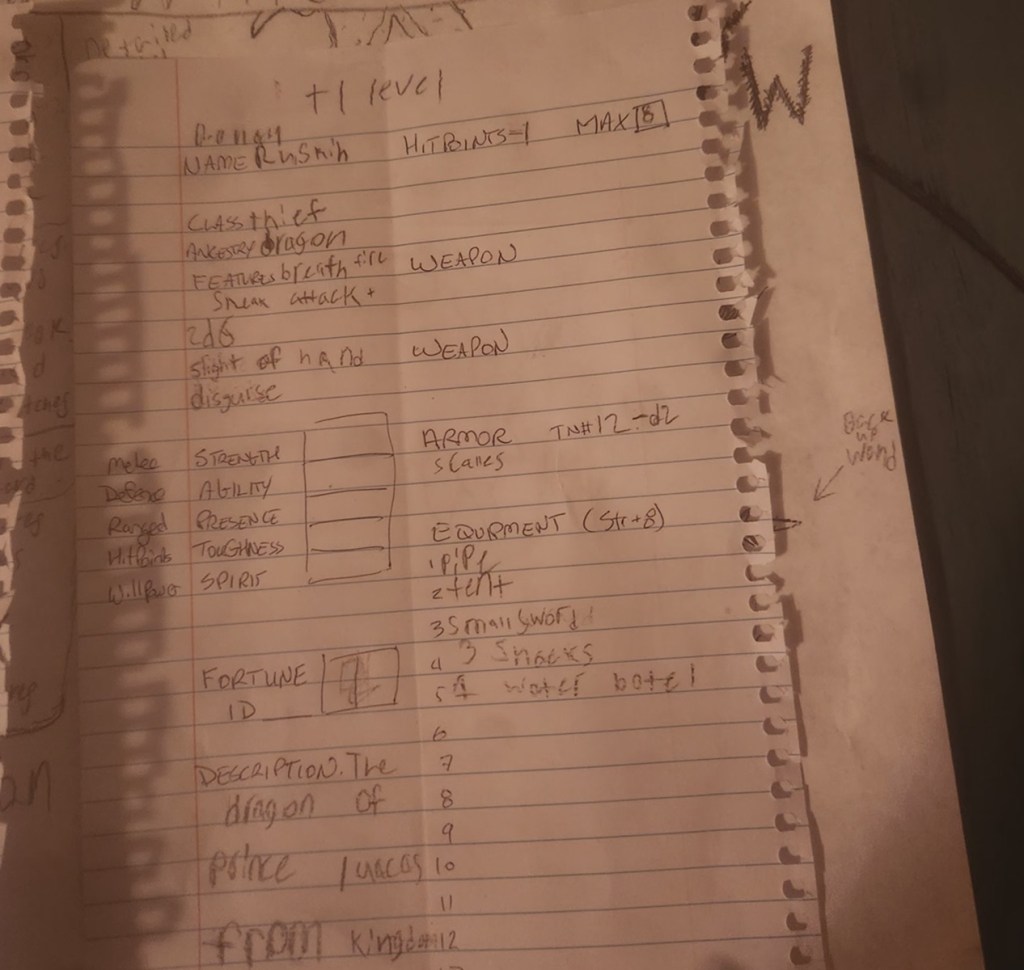 Detailed
+1 level
W
NAME RuSnih HITPOINTS-1 MAX 8
CLASS thief
ANCESTRY dragon
FEATURES breath fire WEAPON
Sneak attack +
2d6
slight of hand WEAPON
disgurse
ARMOR TN#12 -d2
Melee STRENGTH scales
Defense AGILITY
Ranged PRESENCE EQUIPMENT (Str+8)
HitPoints TOUGHNESS 1 pipe
Willpower SPIRIT 2 tent
3 Small Sword
4 3 Snacks
FORTUNE 5 1 water botel
ID
6
DESCRIPTION. The 7
dragon of 8
9
prince 10
11
from kingdom 12
Back up